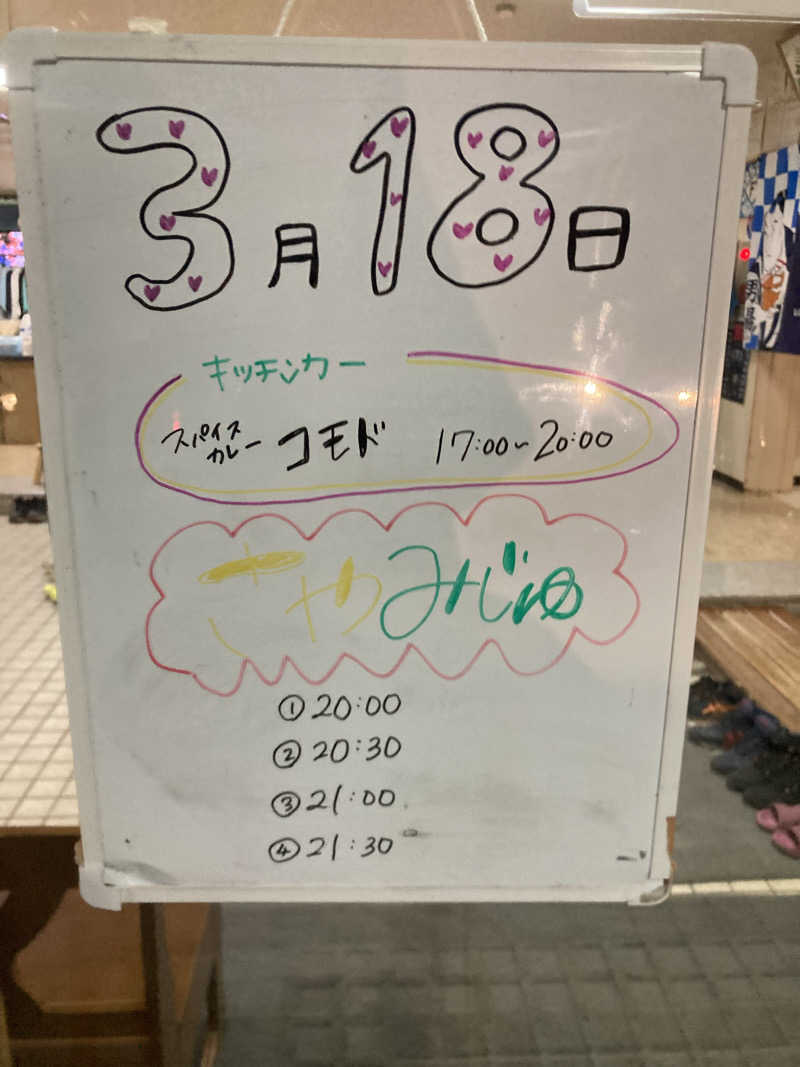 3月18日
キッチンカー
スパイスカレー コモド 17:00~20:00
さやみじゅ
① 20:00
② 20:30
③ 21:00
④ 21:30
男湯